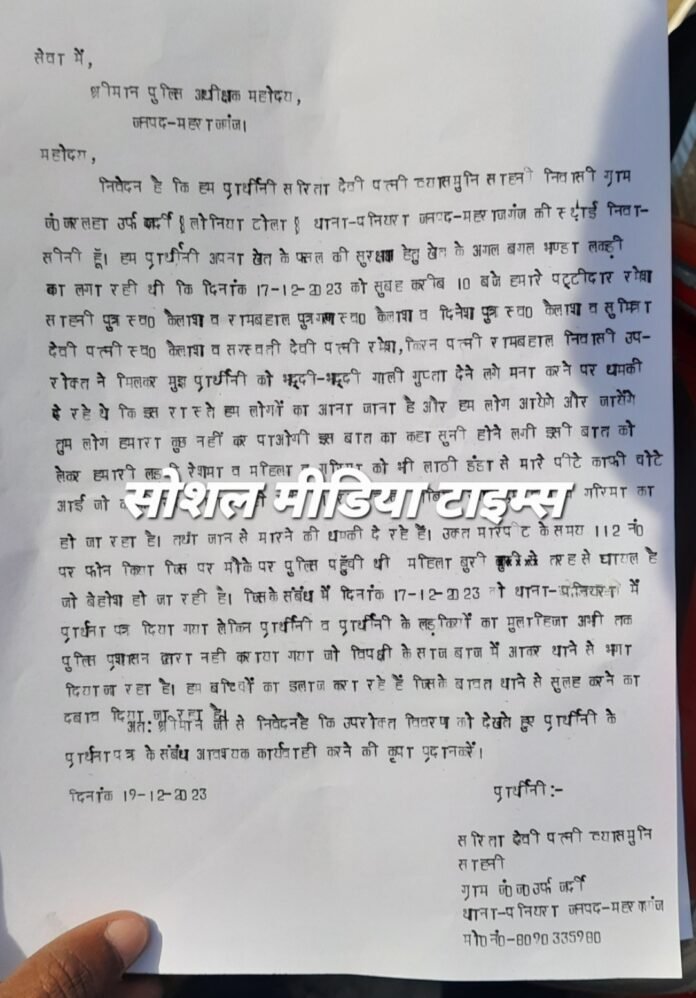 सेवा में,
श्रीमान पुलिस अधीक्षक महोदय,
जनपद-महराजगंज।
महोदय,
निवेदन है कि हम प्रार्थीनी सरिता देवी पत्नी व्यासमुनि साहनी निवासी ग्राम
जं जरलहा उर्फ जर्दी § लोनिया टोला § थाना-पनियरा जनपद-महराजगंज की स्थाई निवा-
सीनी हूँ। हम प्रार्थीनी अपना खेत के फसल की सुरक्षा हेतु खेत के अगल बगल भण्डा लकड़ी
का लगा रही थी कि दिनांक 17-12-2023 को सुबह करीब 10 बजे हमारे पट्टीदार रमेश
साहनी पुत्र स्व0 कैलाश व रामबहाल पुत्रगण स्व0 कैलाश व दिनेश पुत्र स्व0 कैलाश व सुमित्रा
देवी पत्नी स्व0 कैलाश व सरस्वती देवी पत्नी रमेश, किरन पत्नी रामबहाल निवासी उप-
रोक्त ने मिलकर मुझ प्रार्थीनी को भद्दी-भद्दी गाली गुप्ता देने लगे मना करने पर धमकी
दे रहे थे कि इस रास्ते हम लोगों का आना जाना है और हम लोग आयेगें और जायेंगे
तुम लोग हमारा कुछ नहीं कर पाओगी इस बात का कहा सुनी होने लगी इसी बात को
लेकर हमारी लड़की रेशमा व महिमा व को भी लाठी डंडा से मारे पीटे काफी चोटे
आई जो गरिमा का
सोशल मीडिया टाइम्स
हो जा रहा है। तथा जान से मारने की धमकी दे रहे हैं। उक्त मारपीट के समय 112 नं0
पर फोन किया जिस पर मौके पर पुलिस पहुँची थी महिला बुरी तरह से घायल है
जो बेहोश हो जा रही है। जिसके संबंध में दिनांक 17-12-2023 को थाना-पनियरा में
प्रार्थना पत्र दिया गया लेकिन प्रार्थीनी व प्रार्थीनी के लड़कियों का मुलाहिजा अभी तक
पुलिस प्रशासन द्वारा नही कराया गया जो विपक्षी के साज बाज में आकर थाने से भगा
दिया जा रहा है। हम बच्चियों का इलाज करा रहे हैं जिसके बावत थाने से सुलह करने का
दबाव दिया जा रहा है।
अत: श्रीमान जी से निवेदन है कि उपरोक्त विवरण को देखते हुए प्रार्थीनी के
प्रार्थनापत्र के संबंध आवश्यक कार्यवाही करने की कृपा प्रदान करें।
दिनांक 19-12-2023
प्रार्थीनी :-
सरिता देवी पत्नी व्यासमुनि
साहनी
ग्राम जं0 ज0 उर्फ जर्दी
थाना-पनियरा जनपद-महराजगंज
मो0 नं0-8090335980